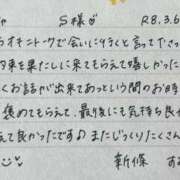 S様 R8.3.6
オキニトークで会いに行くと言って下さっ
約束を果たしに来てもらえて嬉しかった
くお話が出来てあっという間のお時
褒めてもらえて、最後にも気持ち良
えて良かったです♪またじっくりたくさん
新條